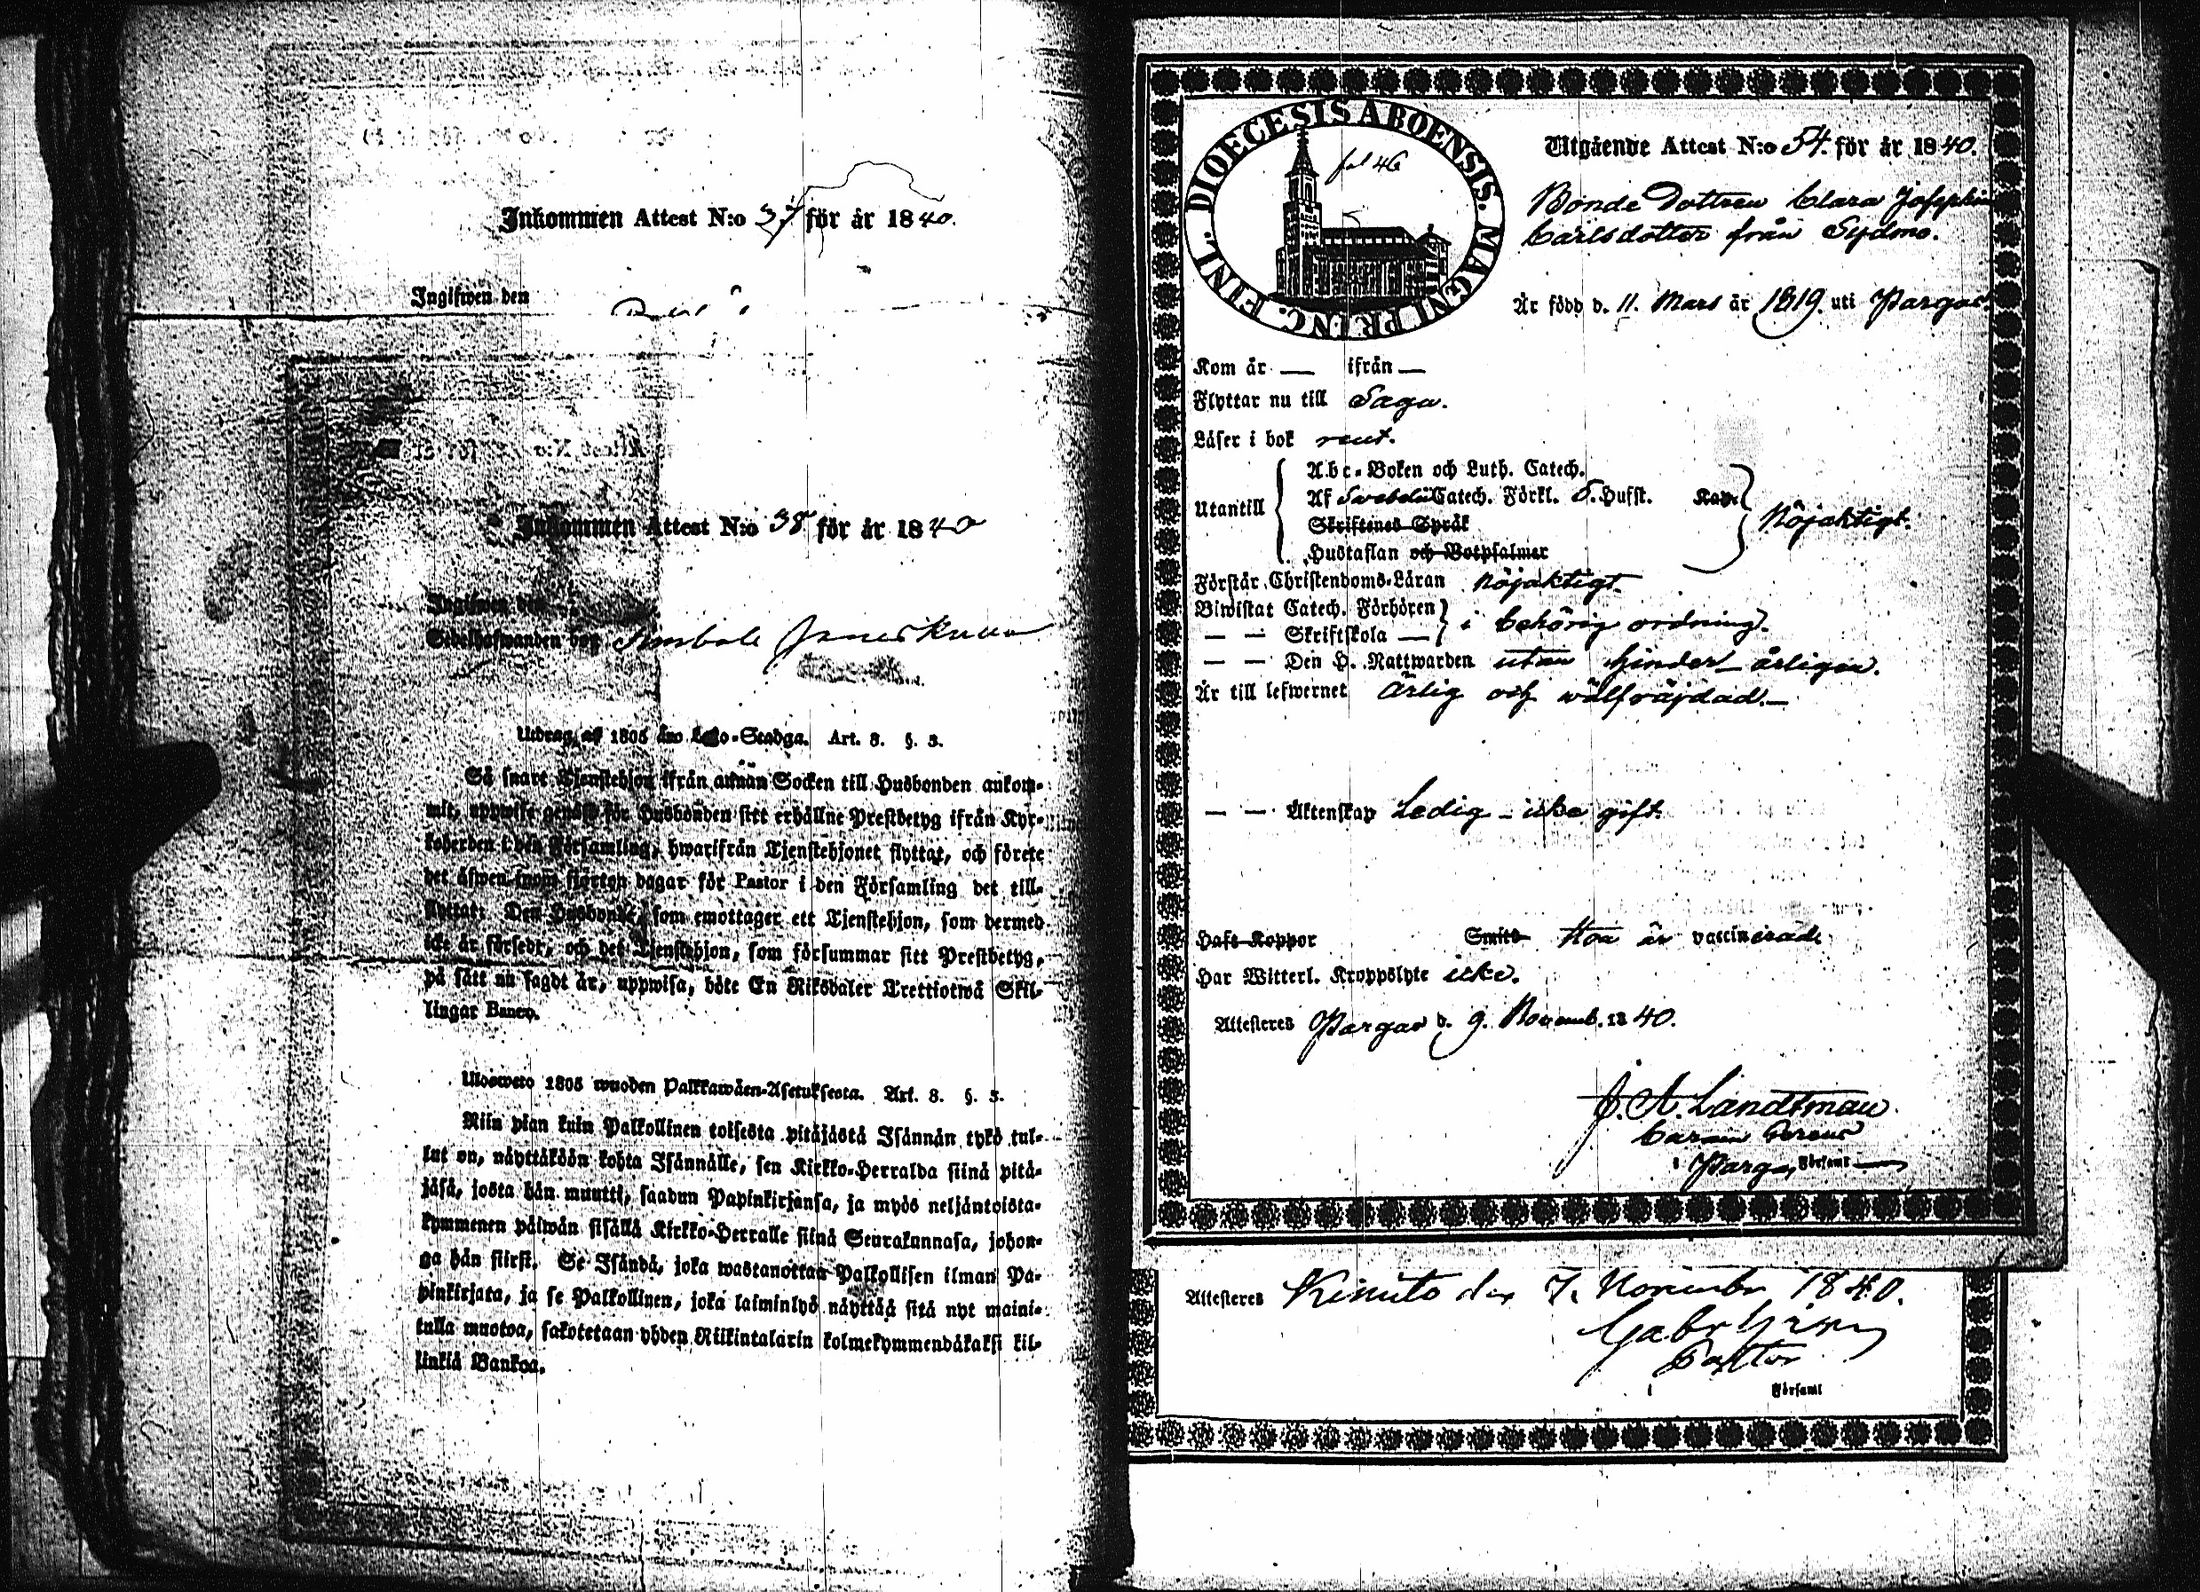 Inkommen Attest N:o 37 för år 1840.
Ingifwen den
Inkommen Attest N:o 38 för år 1840
Ingifwen den
Sedelhafwanden bor
Utdrag af 1805 års Lego-Stadga. Art. 8. §. 3.
Så snart Tjenstehjon ifrån annan Socken till Husbonden ankom-
mit, uppwise genast för Husbonden sitt erhållne Prestbetyg ifrån Kyr-
koherden i den Församling, hwarifrån Tjenstehjonet flyttat, och förete
det äfwen inom fjorton dagar för Pastor i den Församling det till-
flyttat; Den Husbonde, som emottager ett Tjenstehjon, som dermed
icke är försedt, och det Tjenstehjon, som försummar sitt Prestbetyg,
på sätt nu sagdt är, uppwisa, böte En Riksdaler Trettiotwå Skil-
lingar Banco.
Ulosweto 1805 wuoden Palkkawäen-Asetuksesta. Art. 8. §. 3.
Niin pian kuin Palkollinen toisesta pitäjästä Isännän tykö tul-
lut on, näyttäköön kohta Isännälle, sen Kirkko-Herralda siinä pitä-
jäsä, josta hän muutti, saadun Papinkirjansa, ja myös neljäntoista-
kymmenen päiwän sisällä Kirkko-Herralle siinä Seurakunnasa, johon-
ga hän siirst. Se Isändä, joka wastanottaa Palkollisen ilman Pa-
pinkirjata, ja se Palkollinen, joka laiminlyö näyttää sitä nyt maini-
tulla muotoa, sakotetaan yhden Riikintalarin kolmekymmendäkaksi kil-
linkiä Bankoa.
DIOECESIS ABOENSIS. MAGNI PRINC. FINL.
fol 46
Utgående Attest N:o 54. för år 1840.
Bonde Dottren Clara Josephin
Carlsdotter från Sydmo.
Är född d. 11. Mars år 1819. uti Pargas.
Kom år — ifrån —
Flyttar nu till Sagu.
Läser i bok rent.
Utantill
Abc-Boken och Luth. Catech.
Af Svebelii Catech. Förkl. 5. Hufst. Kap.
Skriftenes Språk
Hustaflan och Botpsalmer
Nöjaktigt.
Förstår Christendoms-Läran nöjaktigt.
Biwistat Catech. Förhören
— — Skriftskola —
i behörig ordning.
— — Den H. Nattwarden utan hinder årligen.
Är till lefwernet Ärlig och wälfräjdad.—
— — Äktenskap Ledig – icke gift.
Haft Koppor Smitt Hon är vaccinerade
Har Witterl. Kroppslyte icke.
Attesteres Pargas d. 9. Novemb. 1840.
J. A. Landtman
i Pargas Församl —
Attesteres Kimito den 7. November 1840.
Pastor
i Församl